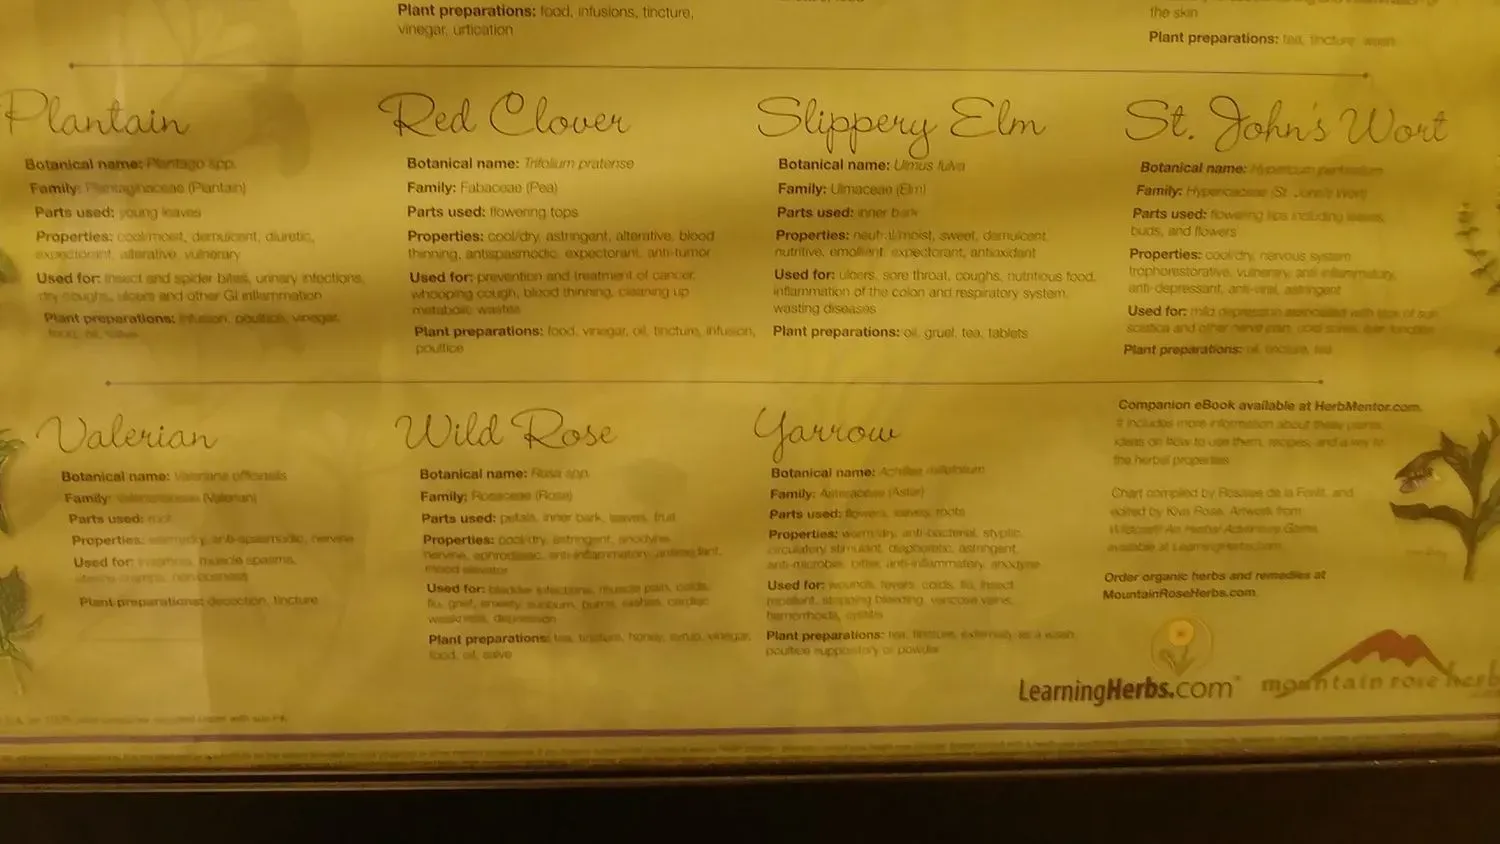 Plant preparations: food, infusions, tincture,
vinegar, urtication
the skin
Plant preparations: tea, tincture, wash
Plantain
Botanical name: Plantago spp.
Family: Plantaginaceae (Plantain)
Parts used: young leaves
Properties: cool/moist, demulcent, diuretic,
expectorant, alterative, vulnerary
Used for: insect and spider bites, urinary infections,
dry coughs, ulcers and other GI inflammation
Plant preparations: infusion, poultice, vinegar,
food, oil, salve
Red Clover
Botanical name: Trifolium pratense
Family: Fabaceae (Pea)
Parts used: flowering tops
Properties: cool/dry, astringent, alterative, blood
thinning, antispasmodic, expectorant, anti-tumor
Used for: prevention and treatment of cancer,
whooping cough, blood thinning, cleaning up
metabolic wastes
Plant preparations: food, vinegar, oil, tincture, infusion,
poultice
Slippery Elm
Botanical name: Ulmus fulva
Family: Ulmaceae (Elm)
Parts used: inner bark
Properties: neutral/moist, sweet, demulcent,
nutritive, emollient, expectorant, antioxidant
Used for: ulcers, sore throat, coughs, nutritious food,
inflammation of the colon and respiratory system,
wasting diseases
Plant preparations: oil, gruel, tea, tablets
St. John's Wort
Botanical name: Hypericum perforatum
Family: Hypericaceae (St. John's Wort)
Parts used: flowering tips including leaves,
buds, and flowers
Properties: cool/dry, nervous system
trophorestorative, vulnerary, anti-inflammatory,
anti-depressant, anti-viral, astringent
Used for: mild depression associated with lack of sun,
sciatica and other nerve pain, cold sores, liver
Plant preparations: oil, tincture, tea
Valerian
Botanical name: Valeriana officinalis
Family: Valerianaceae (Valerian)
Parts used: root
Properties: warm/dry, anti-spasmodic, nervine
Used for: insomnia, muscle spasms,
uterine cramps, nervousness
Plant preparations: decoction, tincture
Wild Rose
Botanical name: Rosa spp.
Family: Rosaceae (Rose)
Parts used: petals, inner bark, leaves, fruit
Properties: cool/dry, astringent, anodyne,
nervine, aphrodisiac, anti-inflammatory, antioxidant,
mood elevator
Used for: bladder infections, muscle pain, colds,
flu, grief, anxiety, sunburn, burns, rashes, cardiac
weakness, depression
Plant preparations: tea, tincture, honey, syrup, vinegar,
food, oil, salve
Yarrow
Botanical name: Achillea millefolium
Family: Asteraceae (Aster)
Parts used: flowers, leaves, roots
Properties: warm/dry, anti-bacterial, styptic,
circulatory stimulant, diaphoretic, astringent,
anti-microbial, bitter, anti-inflammatory, anodyne
Used for: wounds, fevers, colds, flu, insect
repellent, stopping bleeding, varicose veins,
hemorrhoids, cystitis
Plant preparations: tea, tincture, externally as a wash,
poultice suppository or powder
Companion eBook available at HerbMentor.com.
It includes more information about these plants,
ideas on how to use them, recipes, and a key to
the herbal properties.
Chart compiled by Rosalee de la Forêt, and
edited by Kiva Rose. Artwork from
Wildcraft! An Herbal Adventure Game,
available at LearningHerbs.com.
Order organic herbs and remedies at
MountainRoseHerbs.com.
LearningHerbs.com
mountain rose herbs